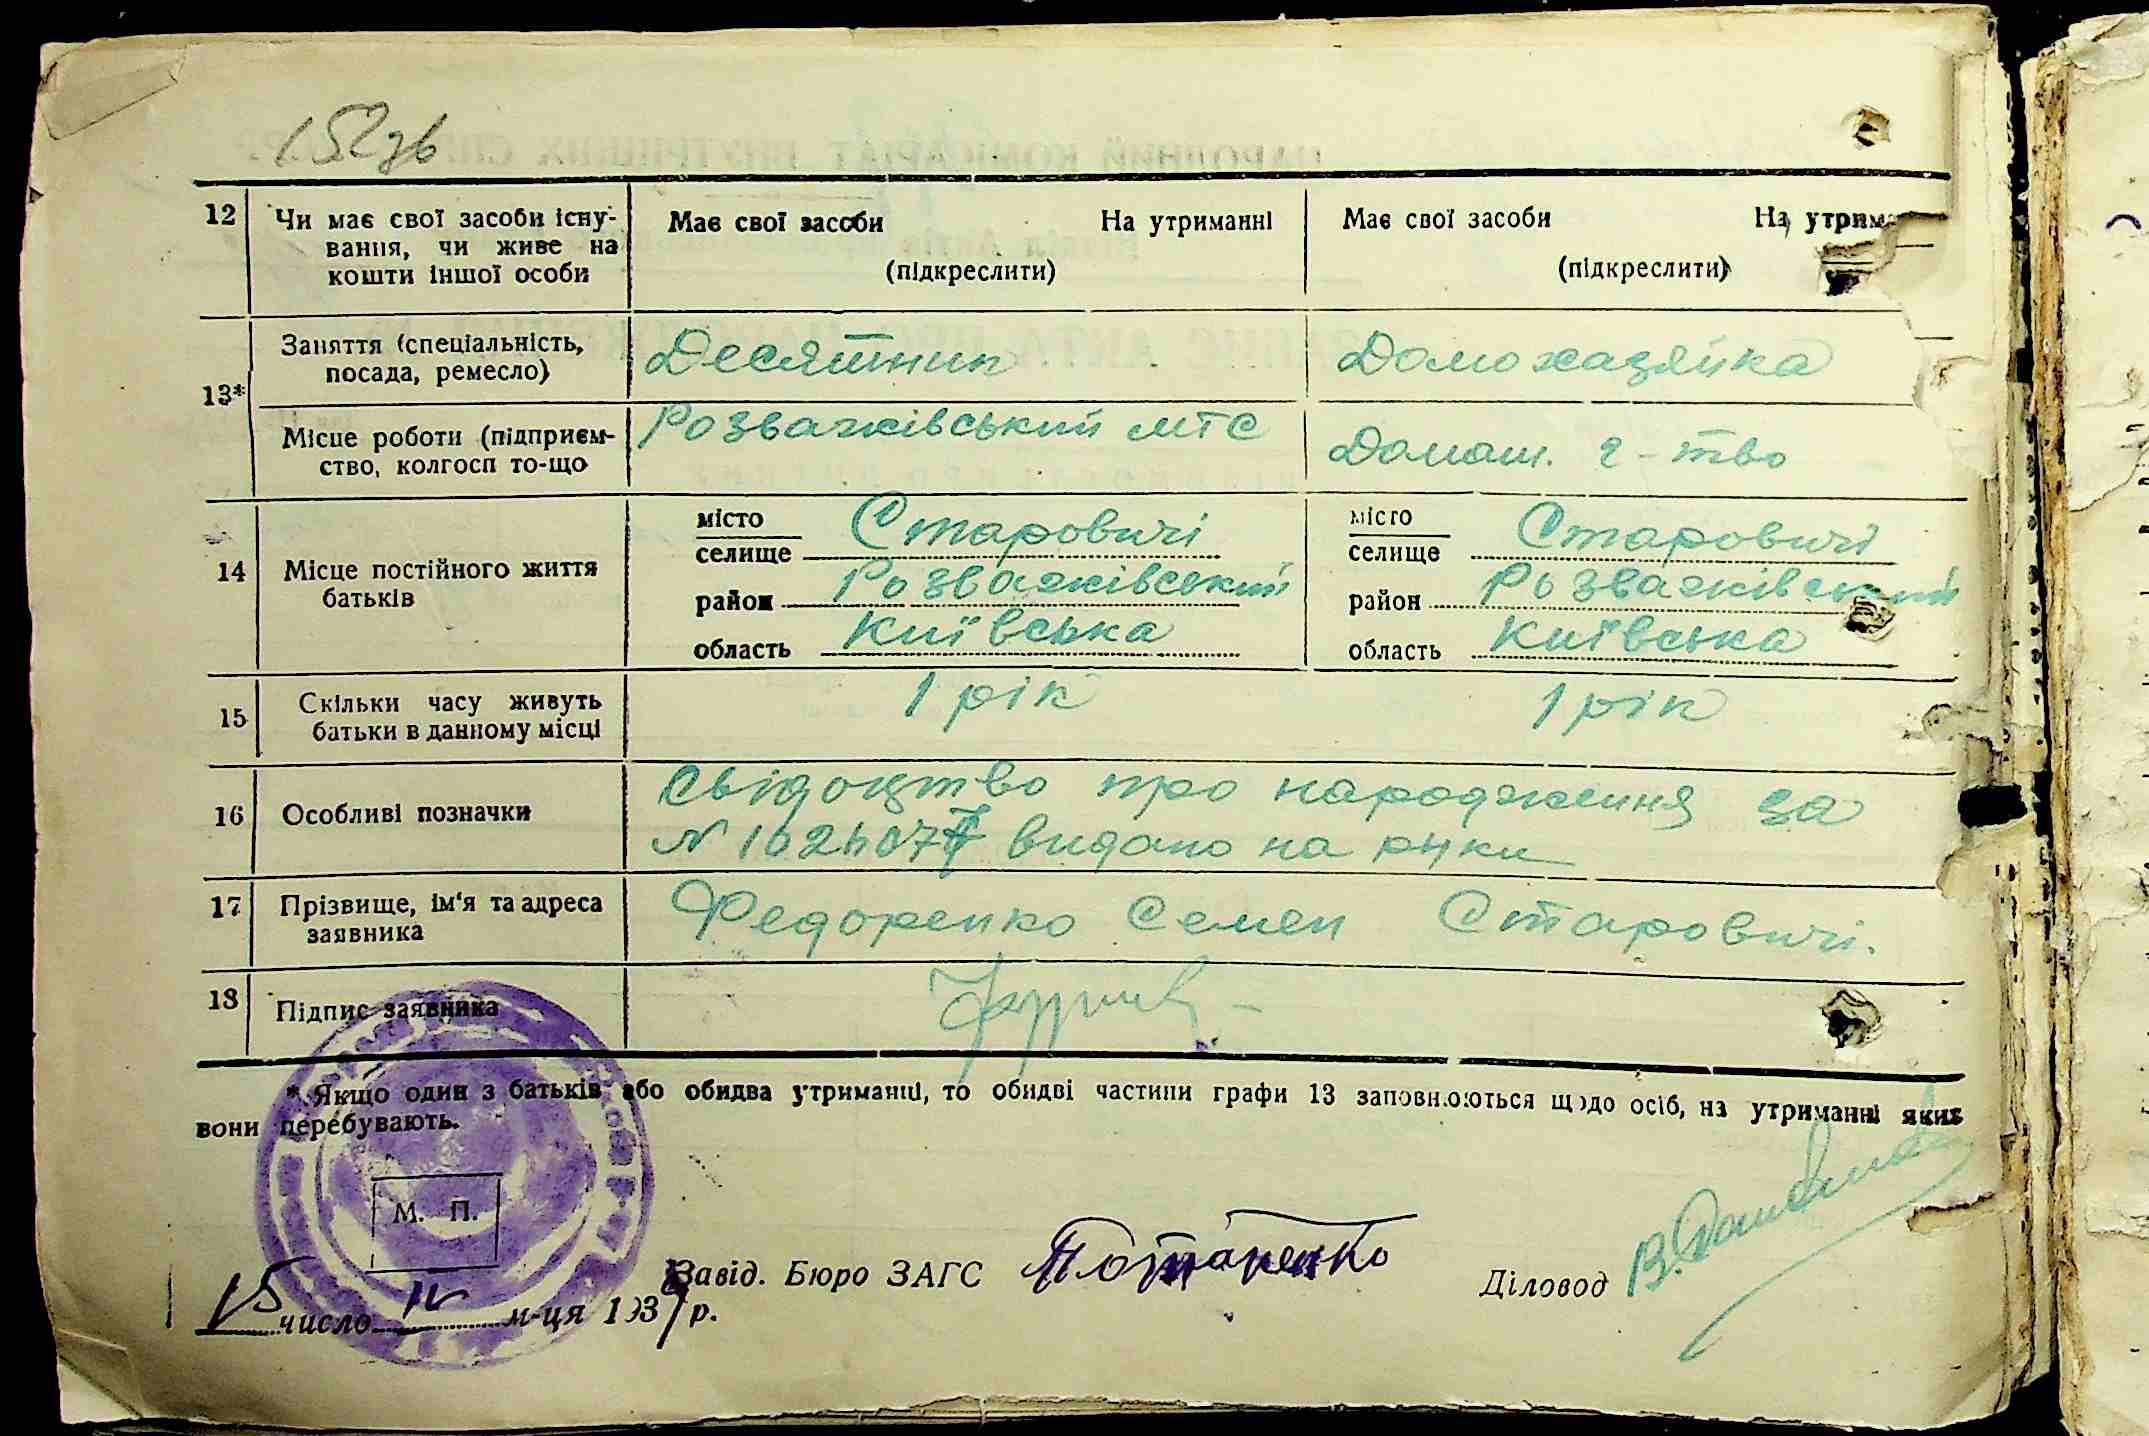 152зв
12 Чи має свої засоби існу- Має свої засоби На утриманні Має свої засоби На утрим
вання, чи живе на
кошти іншої особи (підкреслити) (підкреслити)
13* Заняття (спеціальність, Десятник Домохазяйка
посада, ремесло)
Місце роботи (підприєм- Розважівський МТС Домаш. г-тво
ство, колгосп то-що
14 Місце постійного життя місто Старовичі місто Старовичі
батьків селище селище
район Розважівський район Розважівський
область Київська область Київська
15 Скільки часу живуть 1 рік 1 рік
батьки в данному місці
16 Особливі позначки Свідоцтво про народження за
N видано на руки
17 Прізвище, ім'я та адреса Федоренко Семен Старовичі.
заявника
18 Підпис заявника
* Якщо один з батьків або обидва утриманні, то обидві частини графи 13 заповнюються щодо осіб, на утриманні яких
вони перебувають.
М. П.
Завід. Бюро ЗАГС Потапенко Діловод В.
15 число IV м-ця 193 р.